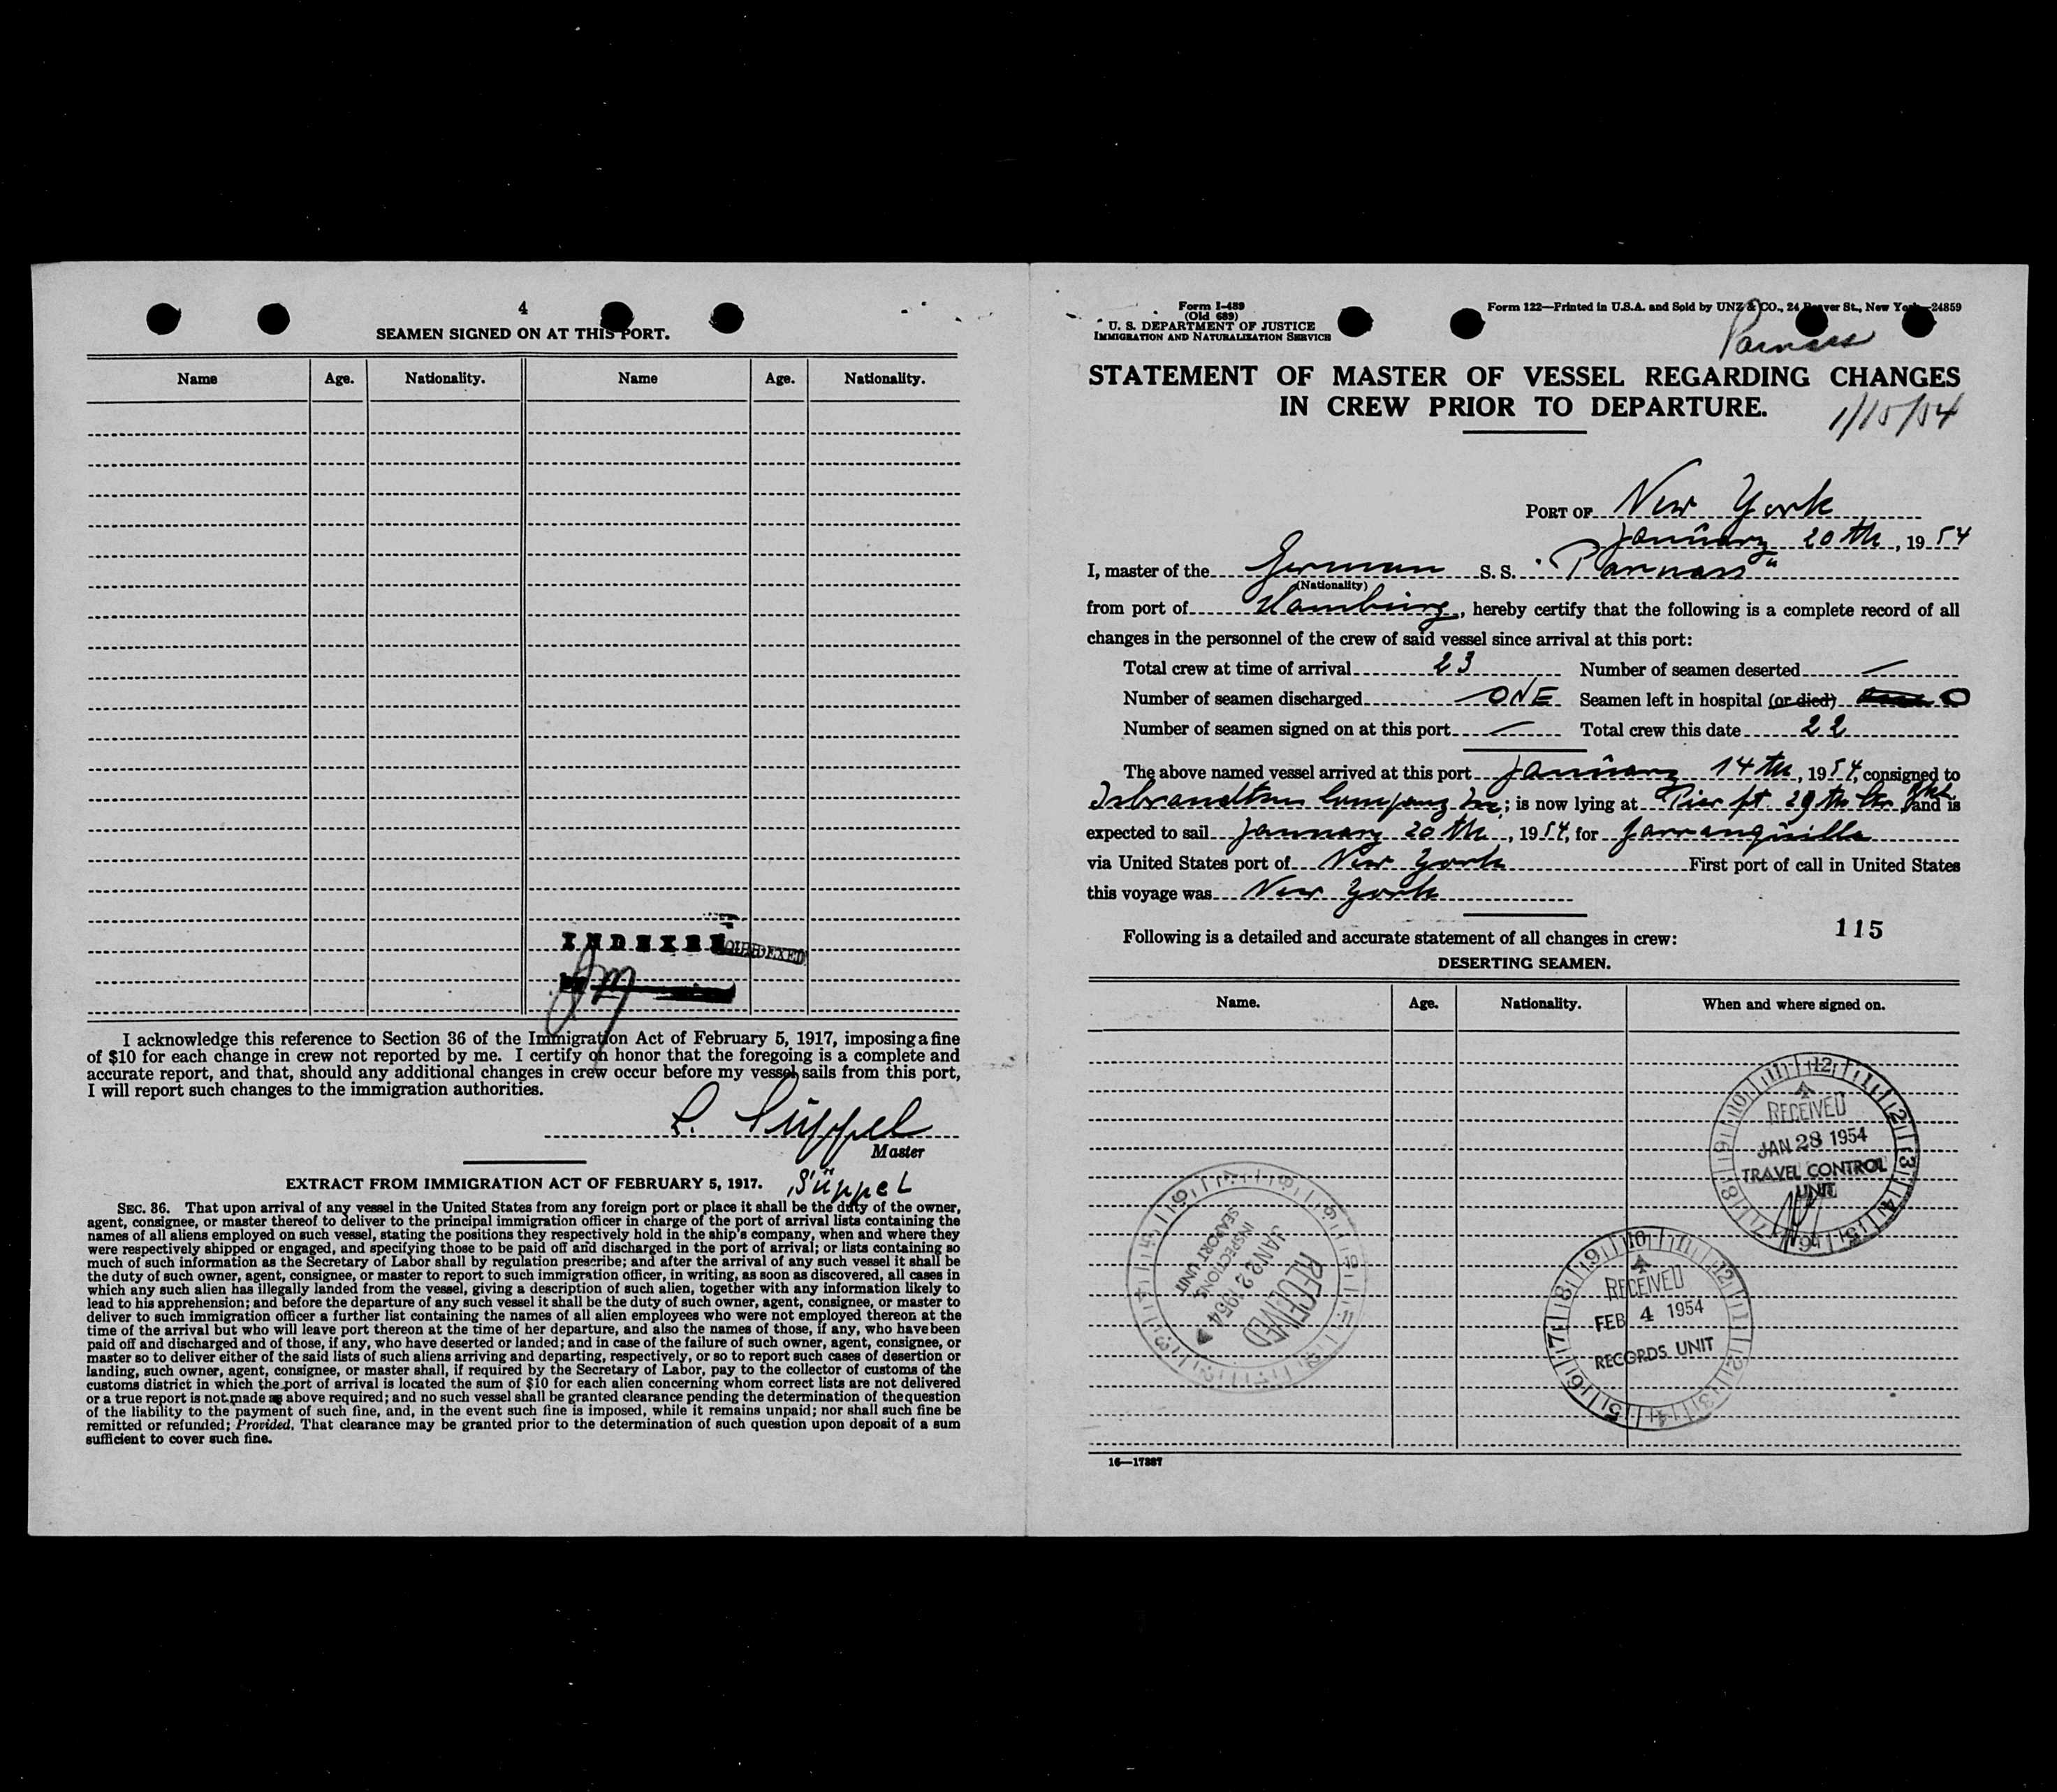 4
SEAMEN SIGNED ON AT THIS PORT.
Name Age. Nationality. Name Age. Nationality.
INDEXED
I acknowledge this reference to Section 36 of the Immigration Act of February 5, 1917, imposing a fine
of $10 for each change in crew not reported by me. I certify on honor that the foregoing is a complete and
accurate report, and that, should any additional changes in crew occur before my vessel sails from this port,
I will report such changes to the immigration authorities.
L. Süppel
Master
EXTRACT FROM IMMIGRATION ACT OF FEBRUARY 5, 1917.
Süppel
SEC. 36. That upon arrival of any vessel in the United States from any foreign port or place it shall be the duty of the owner,
agent, consignee, or master thereof to deliver to the principal immigration officer in charge of the port of arrival lists containing the
names of all aliens employed on such vessel, stating the positions they respectively hold in the ship's company, when and where they
were respectively shipped or engaged, and specifying those to be paid off and discharged in the port of arrival; or lists containing so
much of such information as the Secretary of Labor shall by regulation prescribe; and after the arrival of any such vessel it shall be
the duty of such owner, agent, consignee, or master to report to such immigration officer, in writing, as soon as discovered, all cases in
which any such alien has illegally landed from the vessel, giving a description of such alien, together with any information likely to
lead to his apprehension; and before the departure of any such vessel it shall be the duty of such owner, agent, consignee, or master to
deliver to such immigration officer a further list containing the names of all alien employees who were not employed thereon at the
time of the arrival but who will leave port thereon at the time of her departure, and also the names of those, if any, who have been
paid off and discharged and of those, if any, who have deserted or landed; and in case of the failure of such owner, agent, consignee, or
master so to deliver either of the said lists of such aliens arriving and departing, respectively, or so to report such cases of desertion or
landing, such owner, agent, consignee, or master shall, if required by the Secretary of Labor, pay to the collector of customs of the
customs district in which the port of arrival is located the sum of $10 for each alien concerning whom correct lists are not delivered
or a true report is not made as above required; and no such vessel shall be granted clearance pending the determination of the question
of the liability to the payment of such fine, and, in the event such fine is imposed, while it remains unpaid; nor shall such fine be
remitted or refunded; Provided, That clearance may be granted prior to the determination of such question upon deposit of a sum
sufficient to cover such fine.
Form I-489
(Old 689)
U. S. DEPARTMENT OF JUSTICE
IMMIGRATION AND NATURALIZATION SERVICE
Form 122—Printed in U.S.A. and Sold by UNZ & CO., 24 Beaver St., New York—24859
Parnass
STATEMENT OF MASTER OF VESSEL REGARDING CHANGES
IN CREW PRIOR TO DEPARTURE.
1/15/54
PORT OF New York
January 20th, 1954
I, master of the German S. S. "Parnass"
(Nationality)
from port of Hamburg, hereby certify that the following is a complete record of all
changes in the personnel of the crew of said vessel since arrival at this port:
Total crew at time of arrival 23 Number of seamen deserted —
Number of seamen discharged ONE Seamen left in hospital (or died) 0
Number of seamen signed on at this port — Total crew this date 22
The above named vessel arrived at this port January 14th, 1954, consigned to
Isbrandtsen Company Inc; is now lying at Pier ft 29th Str, and is
expected to sail January 20th, 1954, for Jarranquilla
via United States port of New York First port of call in United States
this voyage was New York
115
Following is a detailed and accurate statement of all changes in crew:
DESERTING SEAMEN.
Name. Age. Nationality. When and where signed on.
RECEIVED
JAN 28 1954
TRAVEL CONTROL
UNIT
RECEIVED
JAN 22 1954
INSPECTIONS
SEAPORT UNIT
RECEIVED
FEB 4 1954
RECORDS UNIT
16—17887